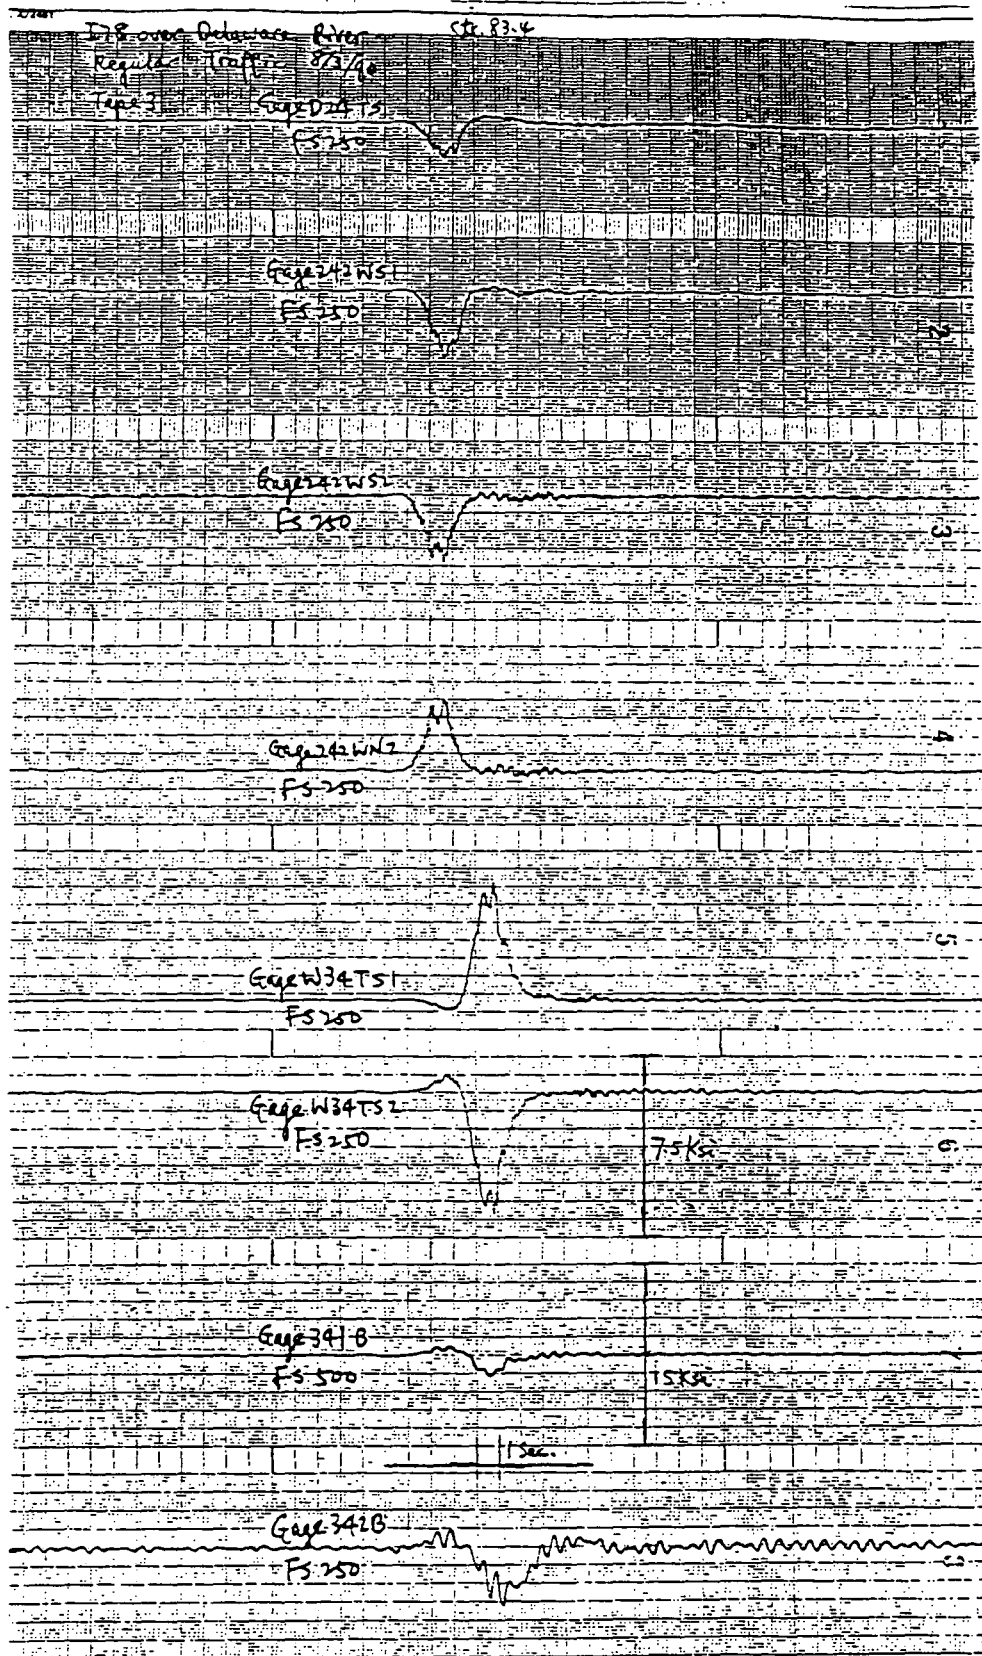 I78 over Delaware River
Ctr. 83.4
Regular Traffic 8/3/90
Tape 3
Gage D24TS1
FS 250
Gage 242WS1
FS 250
2
Gage 242WS2
FS 250
3
Gage 242WN2
FS 250
4
5
Gage W34TS1
FS 250
Gage W34TS2
FS 250
7.5 Ksi
6
Gage 341B
FS 500
15 Ksi
1 Sec.
Gage 342B
FS 250